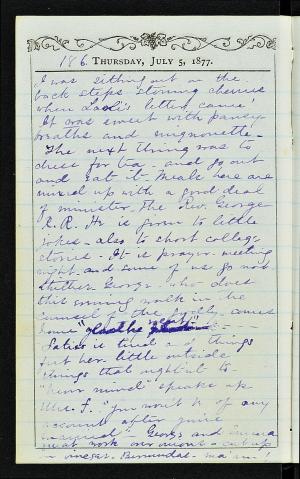 186. THURSDAY, JULY 5, 1877.
I was sitting out on the
back steps stoning cherries
when letter came!
It was sweet with pansy
breaths and mignonette.
The next thing was to
dress for tea - and go out
and eat it. Meals here are
mixed up with a good deal
of minister. The Rev. George
R. R. He is given to little
jokes - also to short college
stories. It is prayer-meeting
night and some of us go not
George who does
this evening walk in the
counsel of the comes
home
is tired and things
just her little outside
things that ought to
"never mind" speaks up
Mrs. F. "you won't be of any
account after you're
" George and
meat cut up
in vinegar. Bermudas - ma'am!